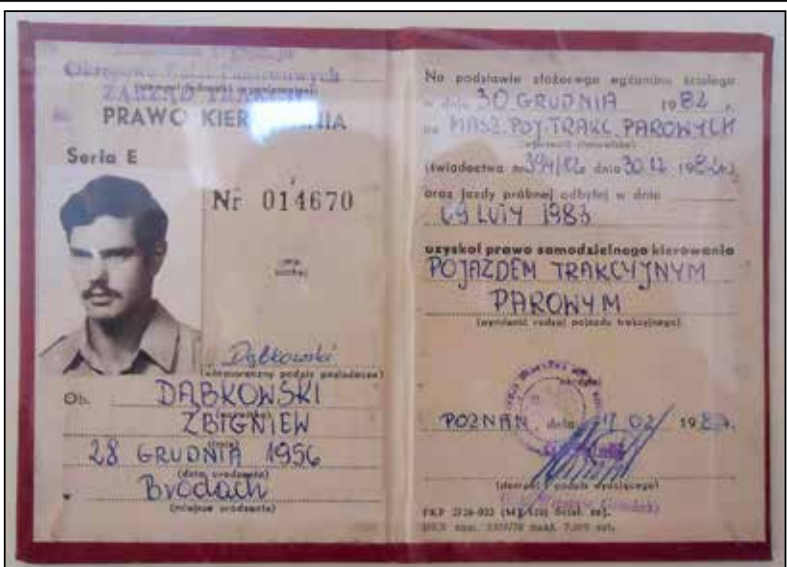 Okręgowa Kolei Państwowych
ZARZĄD TRAKCJI
PRAWO KIEROWANIA
Seria E
Nr 014670
Dąbkowski
(własnoręczny podpis posiadacza)
Ob. DĄBKOWSKI
(nazwisko)
ZBIGNIEW
(imię)
28 GRUDNIA 1956
(data urodzenia)
Brodach
(miejsce urodzenia)
Na podstawie złożonego egzaminu ścisłego
w dniu 30 GRUDNIA 1982 r.
na MASZ. POJ. TRAKC. PAROWYCH
(wymienić stanowisko)
(świadectwo nr 394/82 dnia 30.12 1982 r.)
oraz jazdy próbnej odbytej w dniu
09 LUTY 1983
uzyskał prawo samodzielnego kierowania
POJAZDEM TRAKCYJNYM
PAROWYM
(wymienić rodzaj pojazdu trakcyjnego)
POZNAŃ, dnia 02 198 r.
(stempel i podpis wydającego)